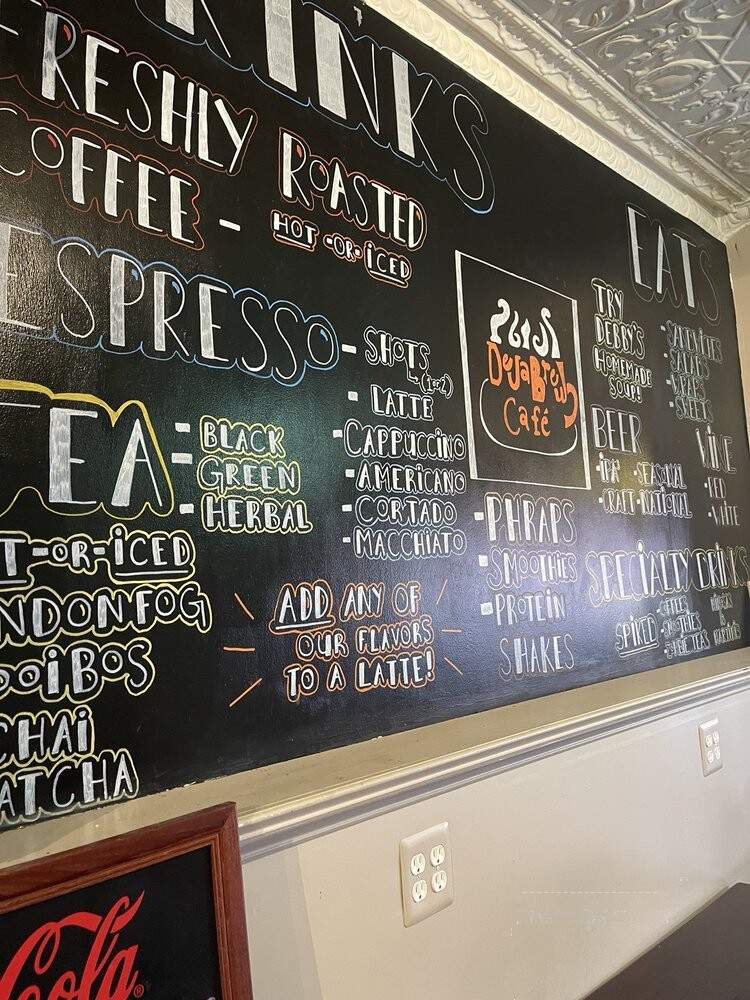 RINKS
FRESHLY ROASTED
COFFEE - HOT -OR- ICED
ESPRESSO - SHOTS
(1 or 2)
- LATTE
- CAPPUCCINO
- AMERICANO
- CORTADO
- MACCHIATO
TEA - BLACK
- GREEN
- HERBAL
T-OR-ICED
NDON FOG
OOIBOS
CHAI
ATCHA
ADD ANY OF
OUR FLAVORS
TO A LATTE!
DejaBrew
Café
- PHRAPS
- SMOOTHIES
- PROTEIN
SHAKES
EATS
TRY
DEBBY'S
HOMEMADE
SOUP!
- SANDWICHES
- SALADS
- WRAPS
- SWEETS
BEER
- IPA - SEASONAL
- CRAFT - NATIONAL
WINE
- RED
- WHITE
SPECIALTY DRINKS
SPIKED - COFFEE
- SMOOTHIES
MARTINIS
Cola